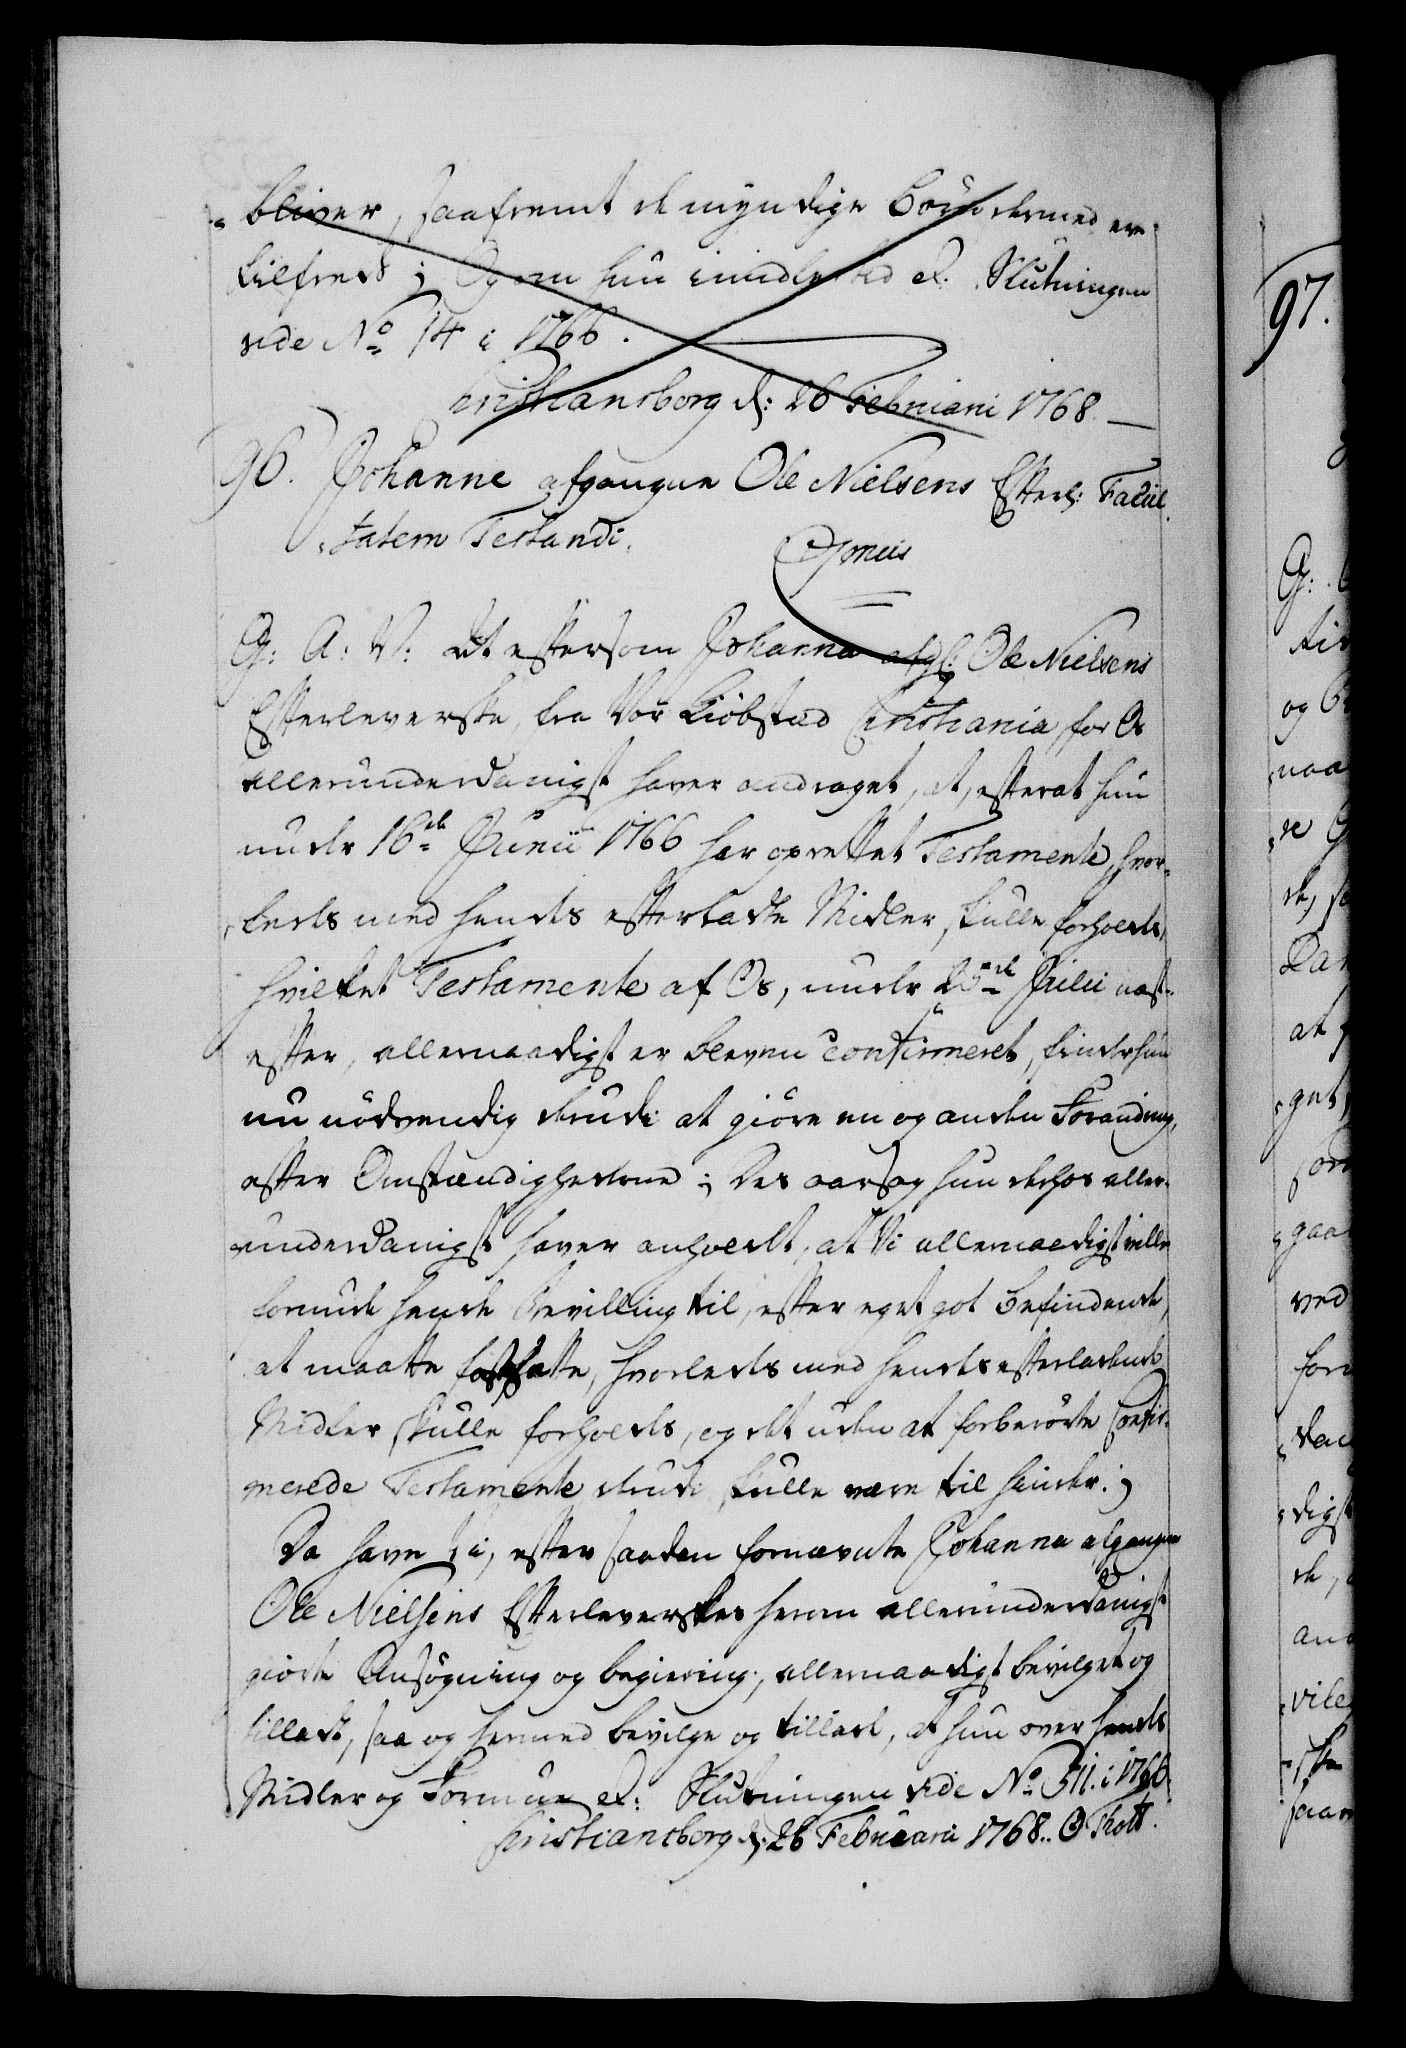 bliver, saafremt de myndige Börn dermed ere
tilfreds; Og om hun imidlertid &. Slutningen
vide No 14 i 1766.
Christiansborg d: 26 Februarii 1768.
96. Johanne afgangne Ole Nielsens Efterl: Facul-
tatem Testandi.
Gratis
G: A: V: At eftersom Johanna afg: Ole Nielsens
Efterleverske, fra Vor Kiöbstad Christiania, for Os
allerunderdanigst haver andraget, at, efterat hun
under 16de Junii 1766 har oprettet Testamente, hvor-
ledes med hendes efterladte Midler skulle forholdes,
hvilket Testamente af Os, under 25de Julii næst-
efter, allernaadigst er bleven confirmeret, finder hun
nu nödvendig derudi at giöre en og anden Forandring,
efter Omstændighederne; Des aarsag hun derhos aller-
underdanigst haver anholdt, at Vi allernaadigst ville
forunde hende Bevilling til, efter eget got befindende,
at maatte fastsætte, hvorledes med hendes efterladende
Midler skulle forholdes, og det uden at forberörte Confir-
merede Testamente derudi skulle være til hinder;
Da have Vi, efter saadan fornævnte Johanna afgangne
Ole Nielsens Efterleverskes herom allerunderdanigst
giorte Ansögning og begiering, allernaadigst bevilget og
tilladt, saa og hermed bevilge og tillade, at hun over hendes
Midler og Formue &: Slutningen vide No 311. i 1766.
Christiansborg d: 26 Februarii 1768. O Thott.
97.
G:
og
at
ved